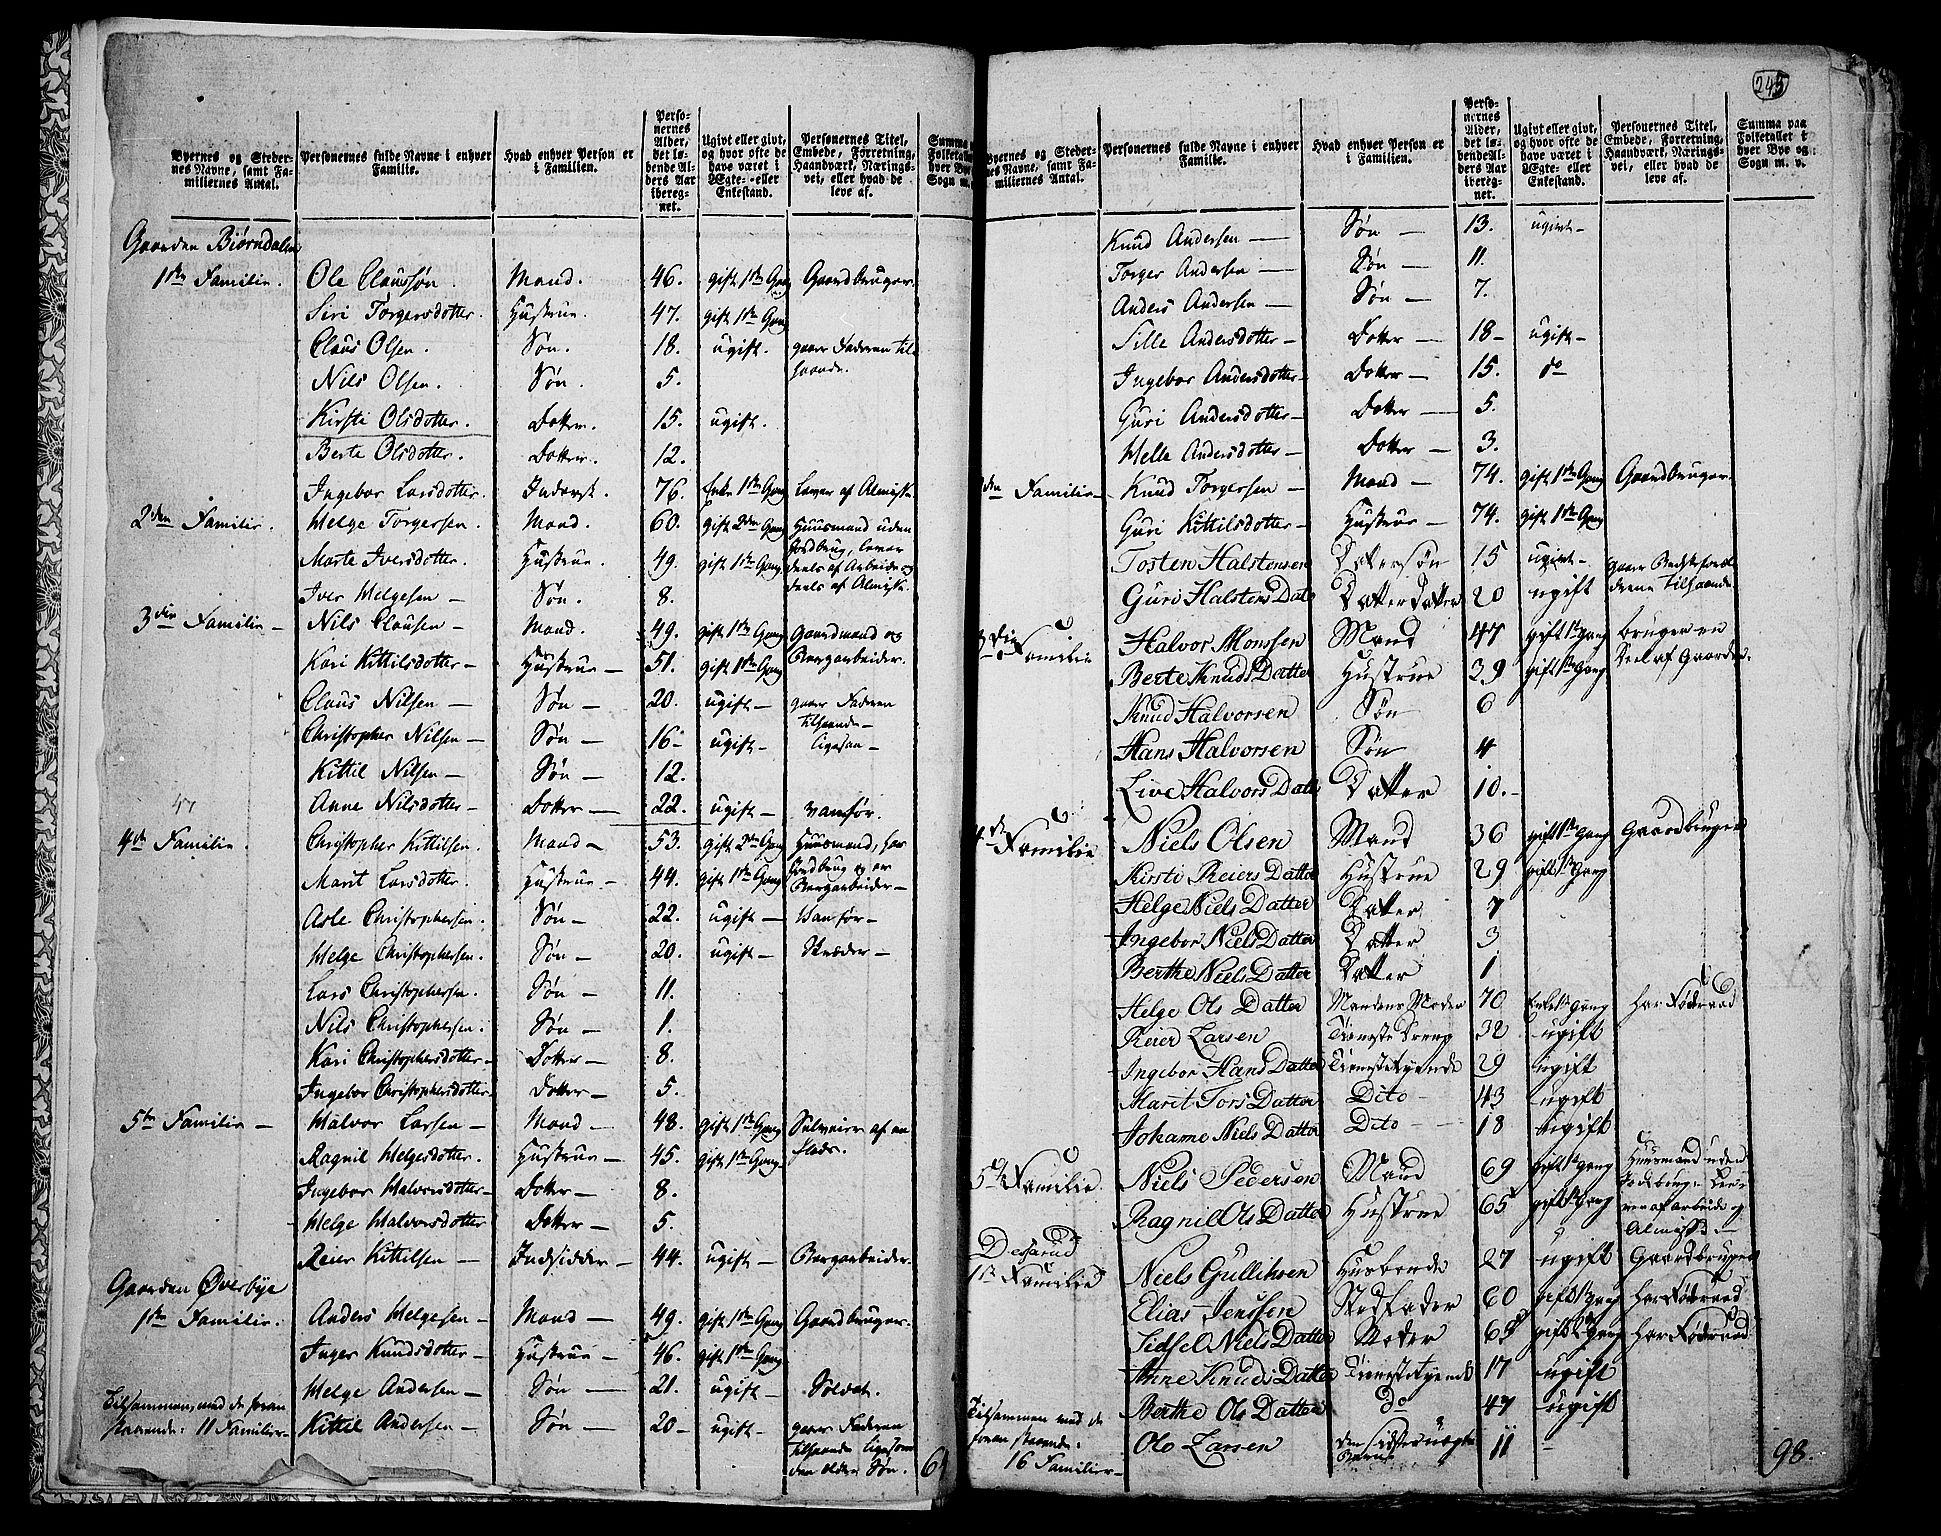 Byernes og Steder-nes Navne, samt Fa-miliernes Antal. | Personernes fulde Navne i enhver Familie. | Hvad enhver Person er i Familien. | Perso-nernes Alder, det lø-bende Al-ders Aar iberegnet. | Ugivt eller givt, og hvor ofte de have været i Ægte- eller Enkestand. | Personernes Titel, Embede, Forretning, Haandværk, Nærings-vei, eller hvad de leve af. | Summa Folketallet hver Bye Sogn m.
Gaarden Biørndalen
1ste Familie. Ole Claussøn. Mand. 46. gift 1ste Gang Gaardbruger.
Siri Torgersdotter. Hustrue. 47. gift 1ste Gang
Claus Olsen. Søn. 18. ugift. gaaer Faderen til
haande.
Nils Olsen. Søn. 5.
Kirsti Olsdotter. Dotter. 15. ugift.
Berte Olsdotter. Dotter. 12.
Ingebor Larsdotter. 76. Enke 1ste Gang Lever af Almisse.
2den Familie. Helge Torgersen. Mand. 60. gift 2den Gang Huusmand uden
Jordbrug, lever
Marte Iversdotter. Hustrue. 49. gift 1ste Gang deels af Arbeide og
deels af Almisse.
Iver Helgesen — Søn. 8.
3die Familie — Nils Clausen — Mand. 49. gift 1ste Gang Gaardmand og
Kari Kittilsdotter — Hustrue — 51. gift 1ste Gang Bergarbeider.
Claus Nilsen — Søn — 20. ugift — gaaer Faderen
tilhaande —
Christopher Nilsen — Søn — 16 — ugift — ligesaa —
Kittil Nilsen — Søn — 12.
47
Anne Nilsdotter — Dotter — 22. ugift — vanfør.
4de Familie. Christopher Kittilsen. Mand — 53. gift 2den Gang Huusmand, har
Jordbrug og er
Marit Larsdotter. Hustrue — 44. gift 1ste Gang Bergarbeider —
Asle Christophersen. Søn — 22. ugift — Vanfør —
Helge Christophersen. Søn — 20. ugift — Skræder —
Lars Christophersen. Søn — 11.
Nils Christophersen. Søn — 1.
Kari Christophersdotter — Dotter — 8.
Ingebor Christophersdotter. Dotter — 5.
5te Familie — Halvor Larsen — Mand — 48. gift 1ste Gang Selveier af en
Ragnil Helgesdotter. Hustrue — 45. gift 1ste Gang
Ingebor Halvorsdotter — Dotter — 8.
Helge Halvorsdotter Dotter — 5.
Reier Kittilsen — Indsidder — 44. ugift — Bergarbeider.
Gaarden Øverbye
1ste Familie. Anders Helgesen — Mand — 49. gift 1ste Gang Gaardbruger.
Inger Knudsdotter — Hustrue — 46. gift 1ste Gang
Helge Andersen — Søn — 21. ugift — Soldat.
Tilsammen, med de foran
staaende: 11 Familier — Kittil Andersen — Søn — 20 — ugift — gaaer Faderen
tilhaande ligesom
den ældre Søn.
245
Byernes og Steder-nes Navne, samt Fa-miliernes Antal. | Personernes fulde Navne i enhver Familie. | Hvad enhver Person er i Familien. | Perso-nernes Alder, det lø-bende Al-ders Aar iberegnet. | Ugivt eller givt, og hvor ofte de have været i Ægte- eller Enkestand. | Personernes Titel, Embede, Forretning, Haandværk, Nærings-vei, eller hvad de leve af. | Summa paa Folketallet i hver Bye og Sogn m. v.
Knud Andersen — Søn — 13. ugivt —
Torger Andersen — Søn — 11.
Anders Andersen — Søn — 7.
Sille Andersdotter — Dotter — 18 — ugift —
Ingebor Andersdotter — Dotter — 15. do
Guri Andersdotter — Dotter — 5.
Helle Andersdotter — Dotter — 3.
den Familie — Knud Torgersen — Mand — 74. gift 1ste Gang Gaardbruger
Guri Kittilsdotter — Hustrue — 74. gift 1ste Gang
Tosten Halstensen Dattersøn 15 ugivt — gaaer Bedsteforæl
Guri Halstens Datt DatterDatter 20 ugift drene Tilhaande
3die Familie Halvor Monssen Mand 47 gift 1st gang bruger en
Berte Knuds Datter Hustrue 39 gift 1st gang Deel af Gaarden.
Knud Halvorsen Søn 6
Hans Halvorsen Søn 4
Live Halvors Datt Datter 10. -
4de Familie Niels Olsen Mand 36 gift 1st gang Gaardbruger
Kirsti Reiers Datter Hustrue 29 gift 1st gang
Helge Niels Datter Datter 7
Ingebor Niels Datter Datter 3
Berthe Niels Datter Datter 1
Helge Ols Datter Mandens Moder 70 Enke 1st gang Har Føderaad
Reier Larsen Tieneste Dreng 32 ugift
Ingebor Hans Datter Tienestetyende 29 ugift
Maret Tors Datter Dito — 43 ugift
Johanne Niels Datter Dito — 18 ugift
5te Familie Niels Pedersen Mand 69 gift 1st gang Huusmand uden
Jordbrug. Lever
Ragnil Ols Datter Hustrue 65 gift 1st gang af arbeide og
Almisse —
Desserud
1ste Familie Niels Gulliksen Husbonde 27 ugift Gaardbruger
Elias Jenssen Stedfader 60 gift 1st gang Har Føderaad
Sidsel Niels Datter Moder 65 gift 2 gang Har Føderaad
Anne Knuds Datter Tienestetyende 17 ugift
Berthe Ols Datter do 47 ugift
Tilsammen med de
foran staaende:
16 Familier —
Ole Larsen 11 - 98.